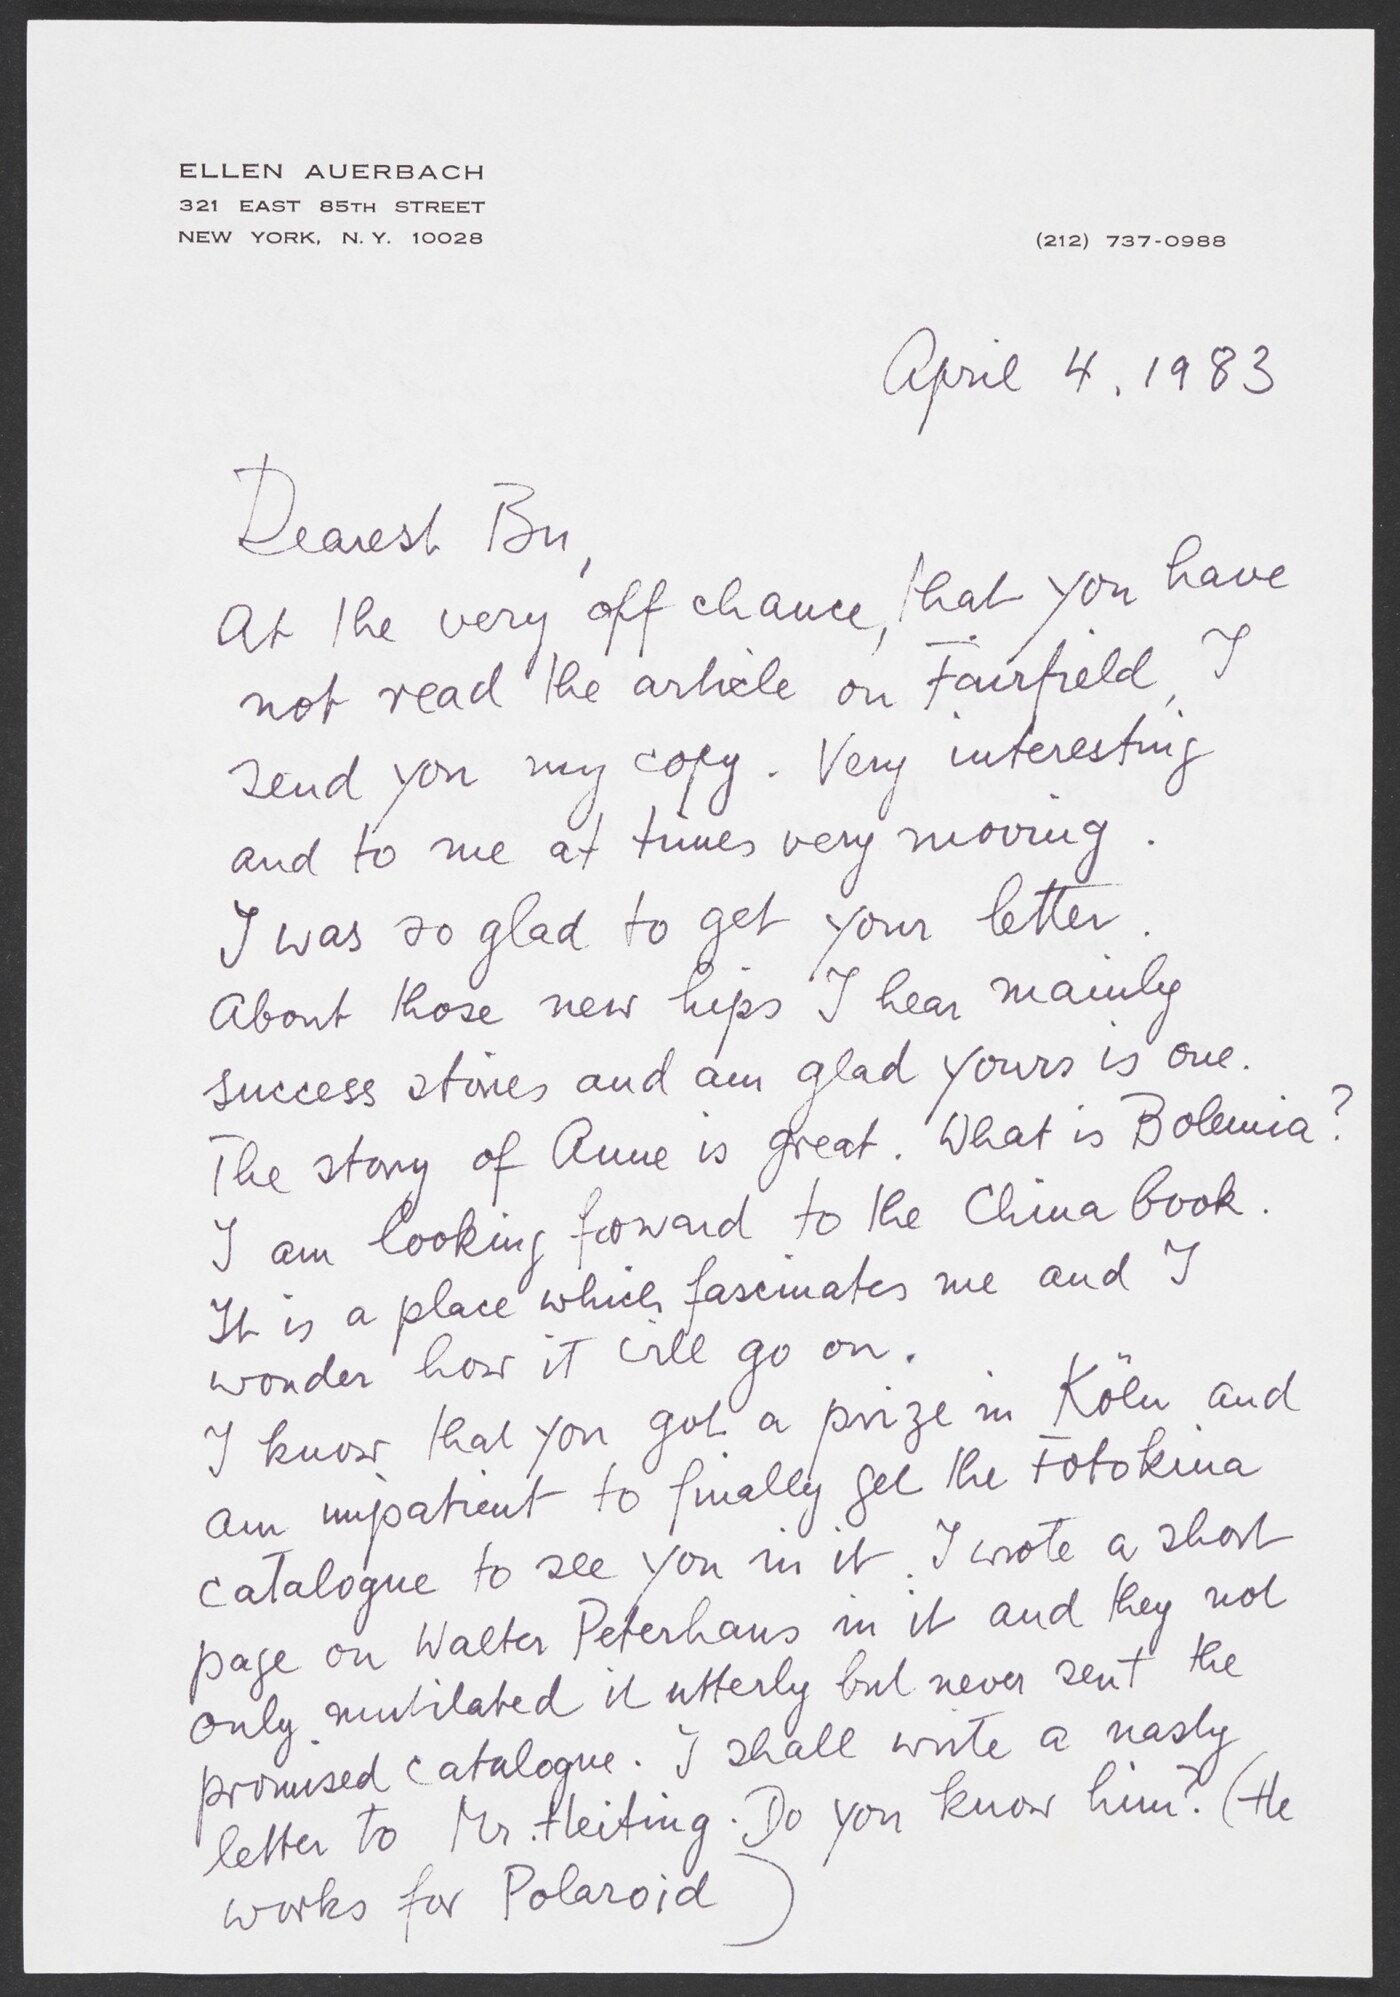 ELLEN AUERBACH
321 EAST 85TH STREET
NEW YORK, N.Y. 10028
(212) 737-0988
April 4, 1983
Dearest Bu,
At the very off chance, that you have
not read the article on Fairfield, I
send you my copy. Very interesting
and to me at times very moving.
I was so glad to get your letter.
About those new hips I hear mainly
success stories and am glad yours is one.
The story of Anne is great. What is Bolemia?
I am looking forward to the China book.
It is a place which fascinates me and I
wonder how it will go on.
I know that you got a prize in Köln and
am impatient to finally get the Fotokina
catalogue to see you in it. I wrote a short
page on Walter Peterhans in it and they not
only mutilated it utterly but never sent the
promised catalogue. I shall write a nasty
letter to Mr. Heiting. Do you know him? (He
works for Polaroid)